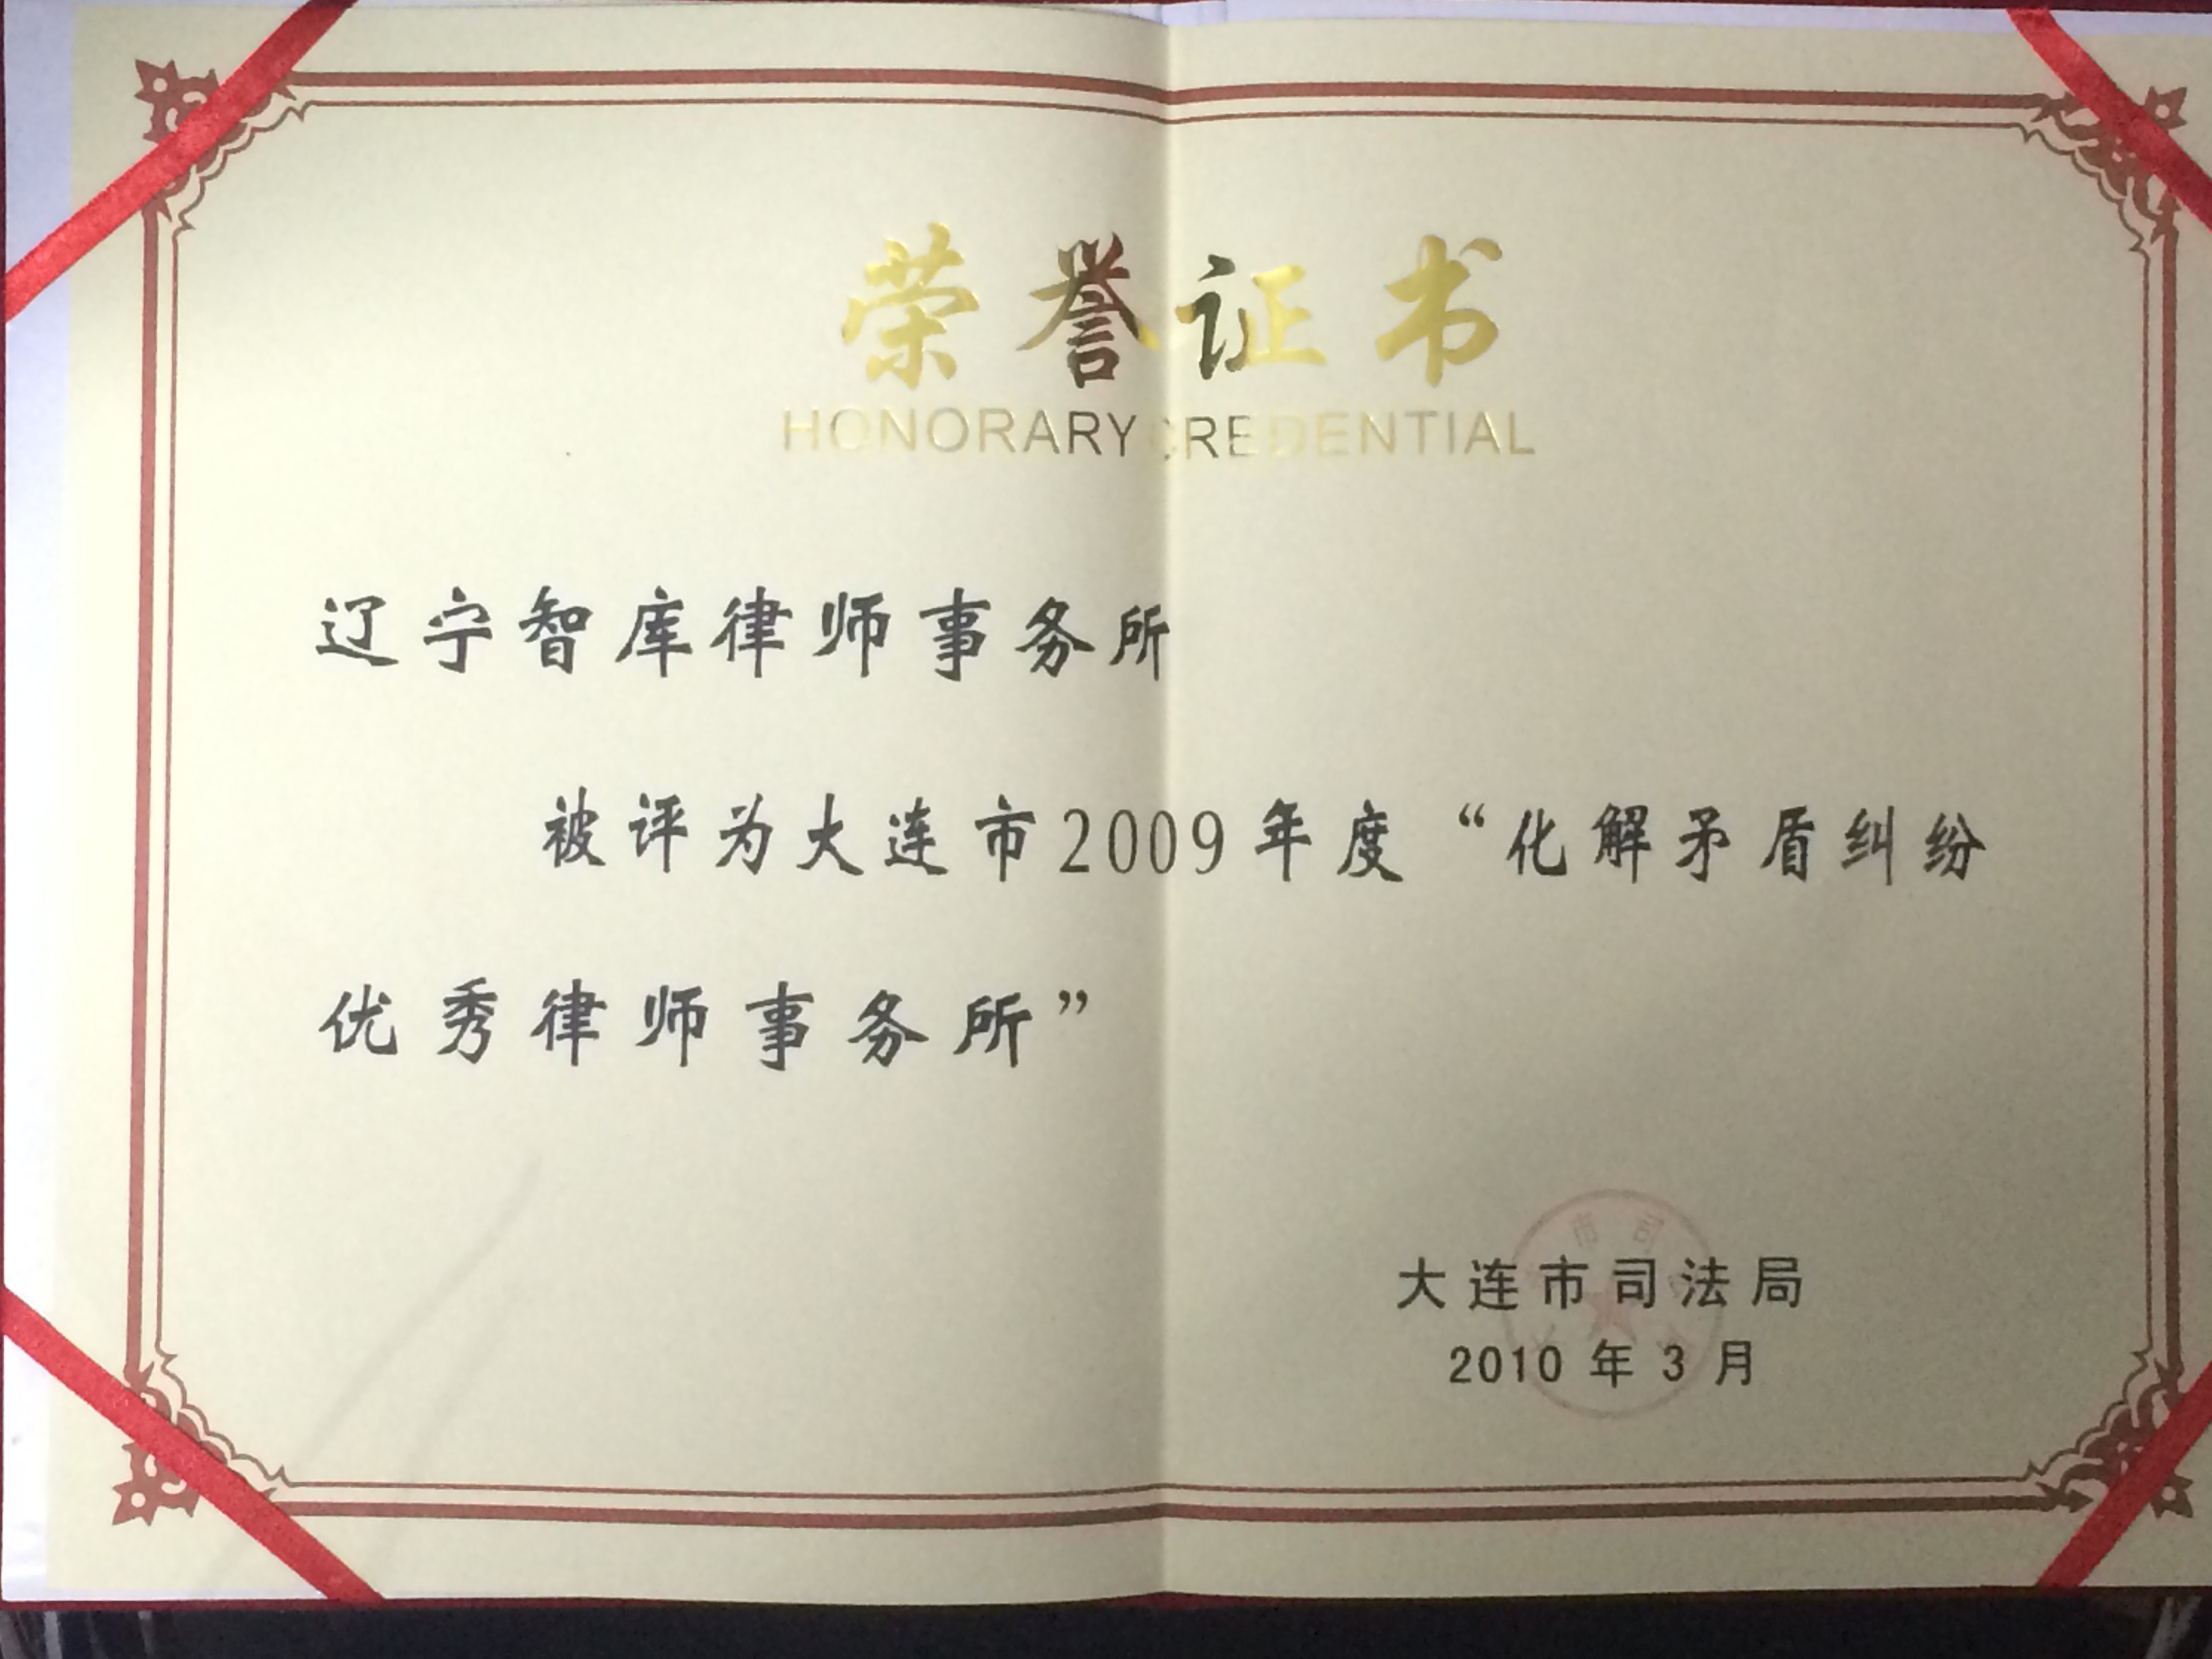 荣誉证书
HONORARY CREDENTIAL
辽宁智库律师事务所
被评为大连市2009年度“化解矛盾纠纷
优秀律师事务所”
市司
大连市司法局
2010年3月